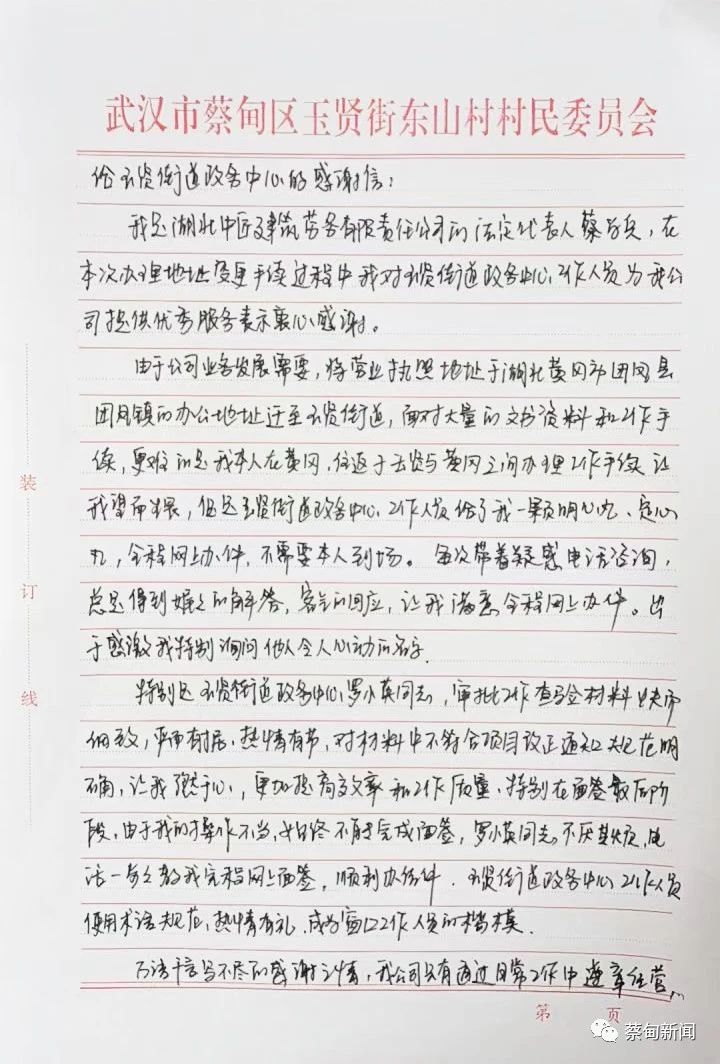 武汉市蔡甸区玉贤街东山村村民委员会
给玉贤街道政务中心的感谢信：
我是湖北中匠建筑劳务有限责任公司的法定代表人蔡兵，在
本次办理地址变更手续过程中我对玉贤街道政务中心工作人员为我公
司提供优秀服务表示衷心感谢。
由于公司业务发展需要，将营业执照地址于湖北黄冈市团风县
团风镇的办公地址迁至玉贤街道，面对大量的文书资料和工作手
续，更难的是我本人在黄冈，往返于玉贤与黄冈之间办理工作手续让
我望而生畏，但是玉贤街道政务中心工作人员给了我一颗明心丸、定心
丸，全程网上办件，不需要本人到场。每次带着疑惑电话咨询，
总是得到娓娓的解答，客气的回应，让我满意全程网上办件。出
于感激我特别询问他人令人心动的名字
特别是玉贤街道政务中心罗小英同志，审批工作查验材料
细致，严而有度、热情有节，对材料中不符合项目改正通知规范明
确，让我 于心，更加提高效率和工作质量，特别在面签最后阶
段，由于我的操作不当，始终不能完成面签，罗小英同志不厌其烦，电
话一步之教我完程网上面签，顺利办结件．玉贤街道政务中心工作人员
使用术语规范，热情有礼，成为窗口工作人员的楷模．
万语千言写不尽的感谢之情，我公司只有通过日常工作中遵章经营
装
订
线
第 页
蔡甸新闻